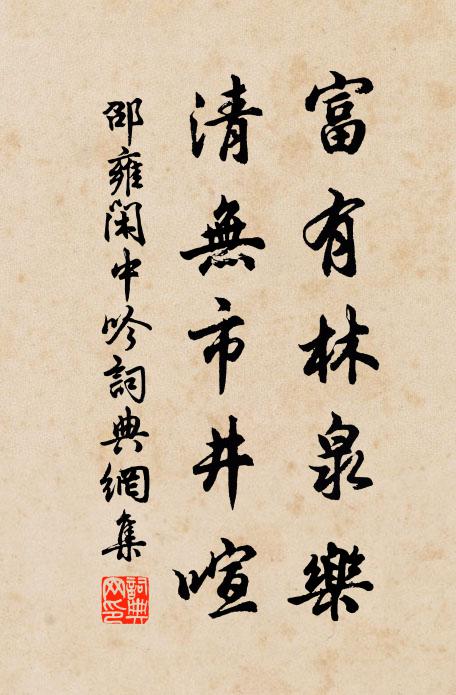 富有林泉樂
清無市井喧
邵雍閑中吟詞典網集
詞典網印